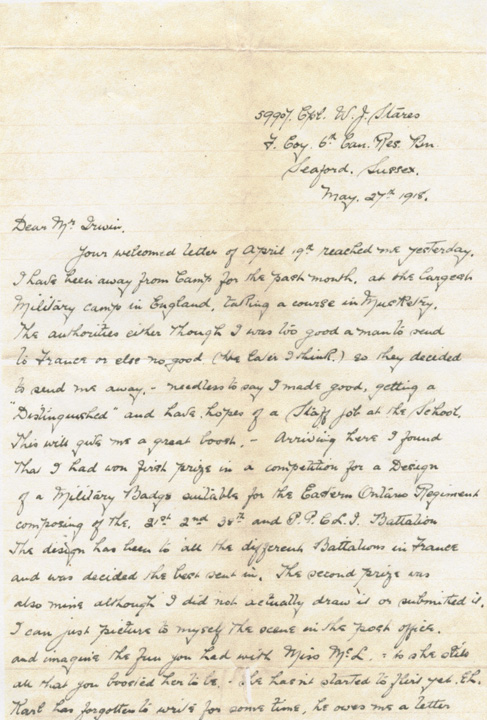 59907. Cpl. W. J. Stares
F. Coy. 6th Can. Res. Bn
Seaford, Sussex.
May. 27th 1918.
Dear Mr Irwin.
Your welcomed letter of April 19th reached me yesterday.
I have been away from Camp for the past month, at the largest
Military camp in England, taking a course in Musketry.
The authorities either though I was too good a man to send
to France or else no good. (the later I think.) so they decided
to send me away. - needless to say I made good, getting a
"Distinguished" and have hopes of a Staff job at the School.
This will give me a great boost. - Arriving here I found
that I had won first prize in a competition for a Design
of a Military Badge suitable for the Eastern Ontario Regiment
composing of the, 21st 2nd 38th and P.P.C.L.I. Battalion
The design has been to all the different Battalions in France
and was decided the best sent in. The second prize was
also mine although I did not actually draw it or submitted it.
I can just picture to myself the scene in the post office.
and imagine the fun you had with Miss McL. - is she still
all that you boosted her to be. - he hasn't started to flirt yet. Eh.
Karl has forgotten to write for some time, he owes me a letter